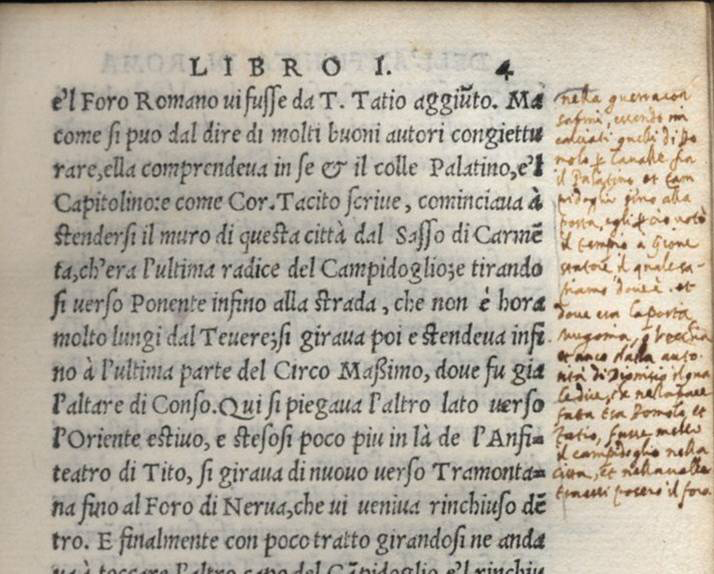 LIBRO I. 4
e'l Foro Romano ui fusse da T. Tatio aggiũto. Ma
come si puo dal dire di molti buoni autori congiettu
rare,ella comprendeua in se & il colle Palatino,e'l
Capitolino:e come Cor.Tacito scriue, cominciaua à
stendersi il muro di questa città dal Sasso di Carmẽ
ta,ch'era l'ultima radice del Campidoglio;e tirando
si uerso Ponente infino alla strada, che non è hora
molto lungi dal Teuere;si giraua poi e stendeua infi
no à l'ultima parte del Circo Maßimo, doue fu gia
l'altare di Conso.Qui si piegaua l'altro lato uerso
l'Oriente estiuo, e stesosi poco piu in là de l'Anfi=
teatro di Tito, si giraua di nuouo uerso Tramonta=
na fino al Foro di Nerua,che ui ueniua rinchiuso dẽ
tro. E finalmente con poco tratto girandosi ne anda
ua à toccare l'altro capo del Cãpidoglio e'l rinchiu
nella guerra con
il Palatino et Cam
pidoglio sino alla
porta,
il tempio a Gioue
statore il quale
doue era la porta
Tatio,
il campidoglio nella
citta, et nella ualle
il foro.